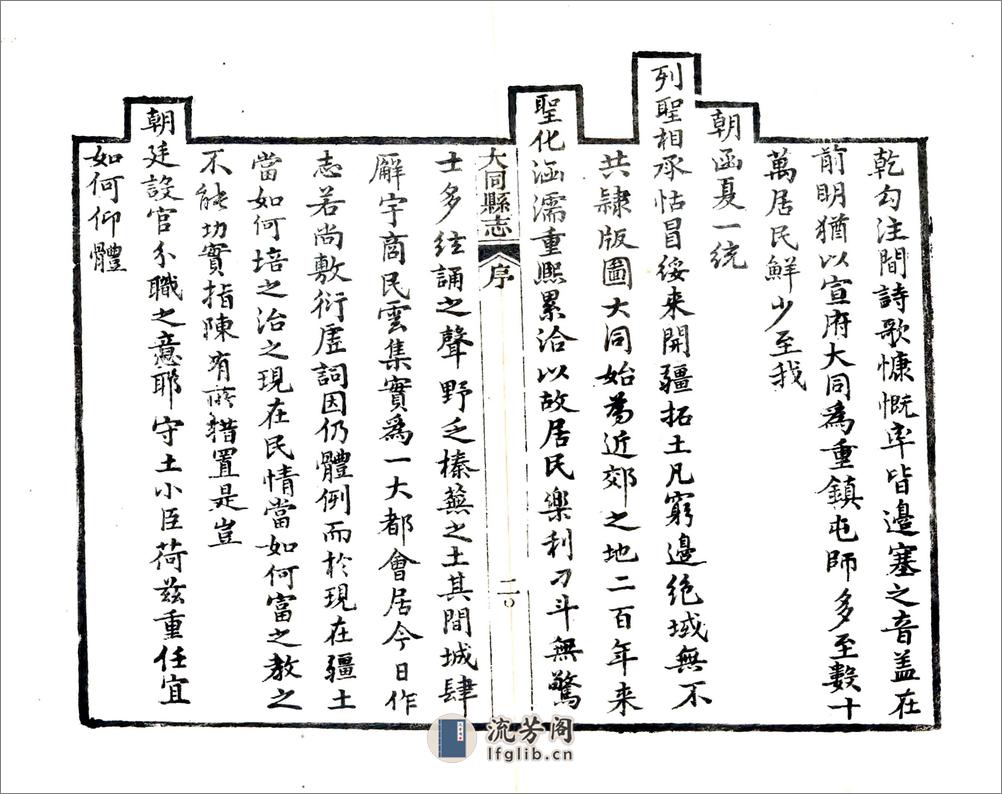 乾勾注間詩歌慷慨率皆邊塞之音盖在
前明猶以宣府大同為重鎮屯師多至數十
萬居民鮮少至我
朝函夏一統
列聖相承怙冒綏来開疆拓土凡窮邊絶域無不
共隸版圖大同始為近郊之地二百年来
聖化涵濡重熙累洽以故居民樂利刀斗無驚
大同縣志 序 二〇
士多絃誦之聲野乏榛蕪之土其間城肆
廨宇商民雲集實爲一大都會居今日作
志若尚敷衍虛詞因仍體例而於現在疆土
當如何培之治之現在民情當如何富之教之
不能切實指陳有所措置是豈
朝廷設官分職之意耶守土小臣荷兹重任宜
如何仰體
流芳阁
lfglib.cn